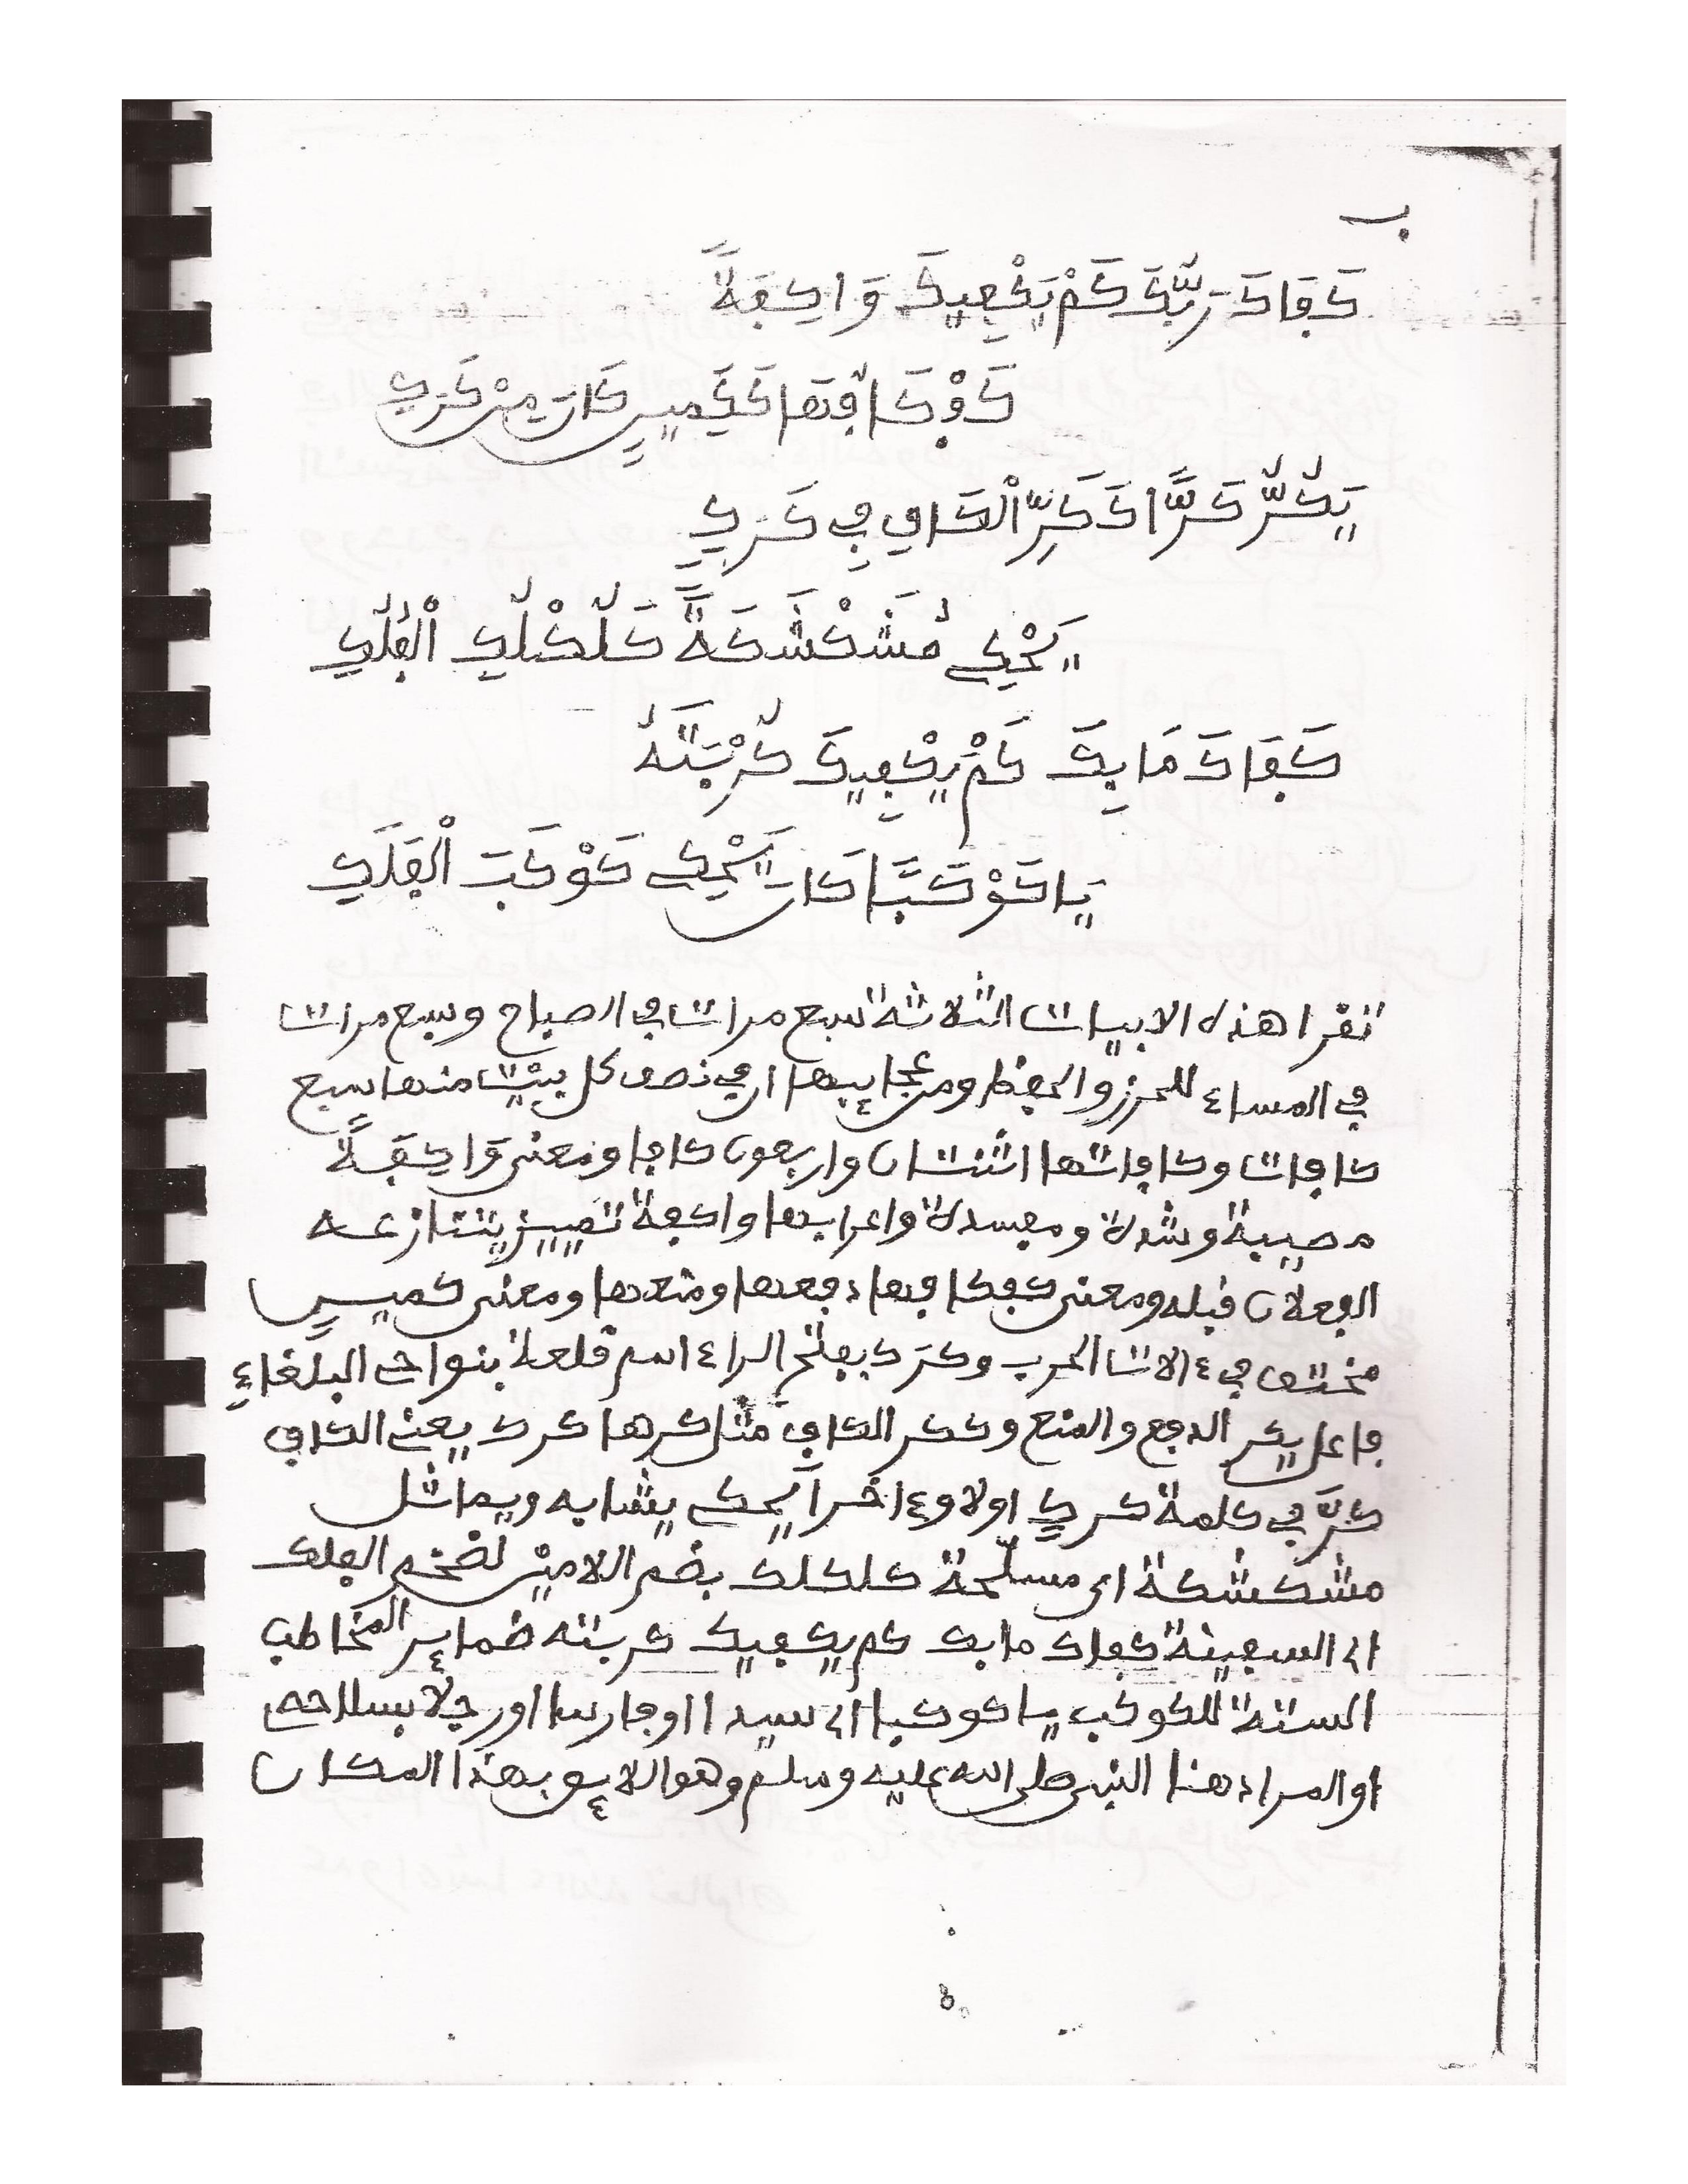 ب
كَفَاكَ رَبُّكَ كَمْ يَكْفِيكَ وَاكِفَةً
كَفْكَافُهَا كَكَمِينٍ كَانَ مِنْ كَرَكِ
يَكُرُّ كَرًّا كَكَرِّ الْكَافِ فِي كَرَكِ
يَحْكِي مُشَكْشَكَةً كَلُكْلُكِ الْفُلُكِ
كَفَاكَ مَا بِكَ كَمْ يَكْفِيكَ كُرْبَتَهُ
يَا كَوْكَبًا كَانَ يَحْكِي كَوْكَبَ الْفَلَكِ
تقرا هذه الابيات الثلاثة سبع مرات في الصباح وسبع مرات
في المساء للحرز والحفظ ومن عجايبها ان في نصف كل بيت منها سبع
كافات وكافاتها اثنتان واربعون كافا ومعنى وَاكِفَةً
مصيبة وشدة ومفسدة واعرابها واكفة تمييز يتنازعه
الفعلان قبله ومعنى كفكافها دفعها ومنعها ومعنى كمينٍ
مختف في ءالات الحرب وكرَك بفتح الراء اسم قلعة بنواحى البلغاءِ
فاعل يكر الدفع والمنع وككر الكاف مثل كرها كرك يعني الكاف
كرَّ في كلمة كركٍ اولا وءاخراً يحكي يشابه ويماثل
مشكشكة اى مسلّحة كلكلك بضم اللامين لضخم الفلك
اى السفينة كفاك ما بك كم يكفيك كربته ضماير المخاطب
الستة للكوكب يا كوكبا اى سيدا او فارسا او رجلا بسلاحه
او المراد هنا النبى صلى الله عليه وسلم وهو اللايق بهذا المكان